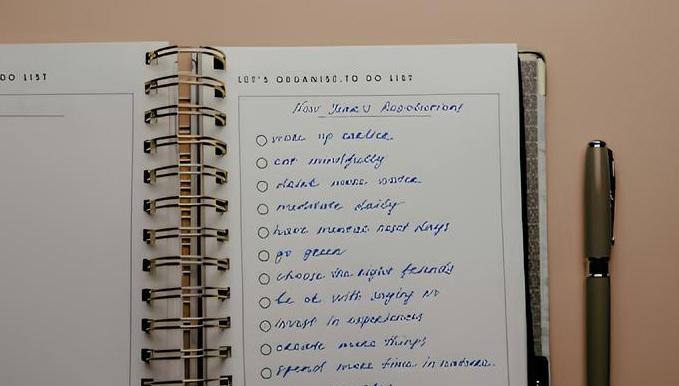 DO LIST
LET'S ORGANISE. TO DO LIST
New Year's Resolutions
wake up earlier
eat mindfully
drink more water
meditate daily
have mental reset days
go green
choose the right friends
be ok with saying no
invest in experiences
create more things
spend more time in nature